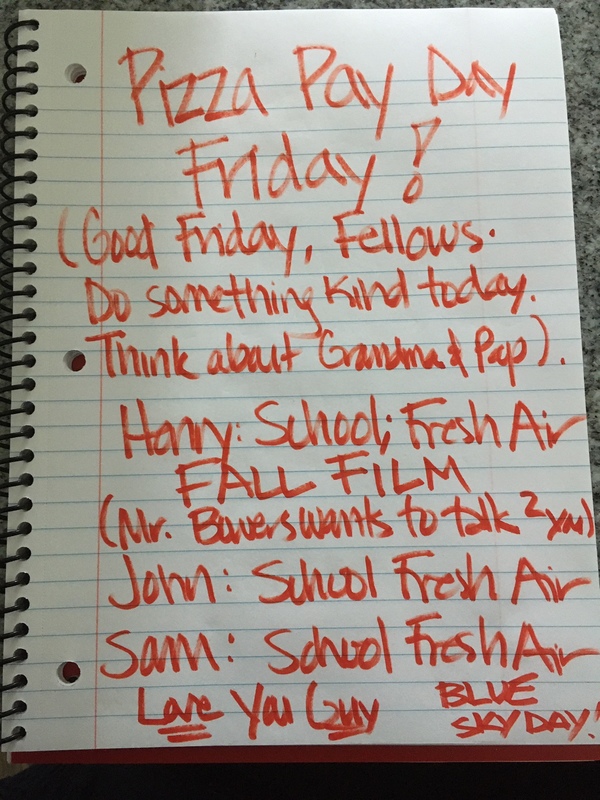 Pizza Pay Day
Friday!
(Good Friday, Fellows.
Do something kind today.
Think about Grandma & Pap).
Henry: School; Fresh Air
FALL FILM
(Mr. Bowers wants to talk 2 you)
John: School Fresh Air
Sam: School Fresh Air
Love You Guy
BLUE
SKY DAY!